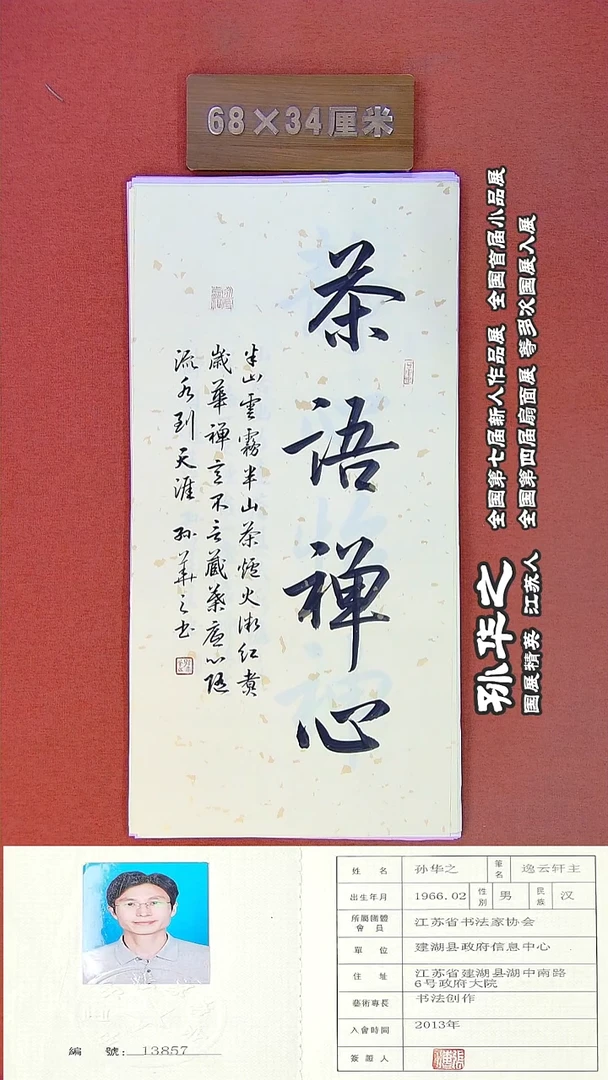 68×34厘米
茶语禅心
半山雲霧半山茶爐火微红煮
歲華禅言不言藏葉底心随
流水到天涯 孙華之书
孙华之
国展精英 江苏人
全国第七届新人作品展 全国首届小品展
全国第四届扇面展 等多次国展入展
編 號: 13857
姓 名 孙华之 筆名 逸云轩主
出生年月 1966.02 性别 男 民族 汉
所屬團體會員 江苏省书法家协会
單 位 建湖县政府信息中心
住 址 江苏省建湖县湖中南路
6号政府大院
藝術專長 书法创作
入會時間 2013年
簽證人